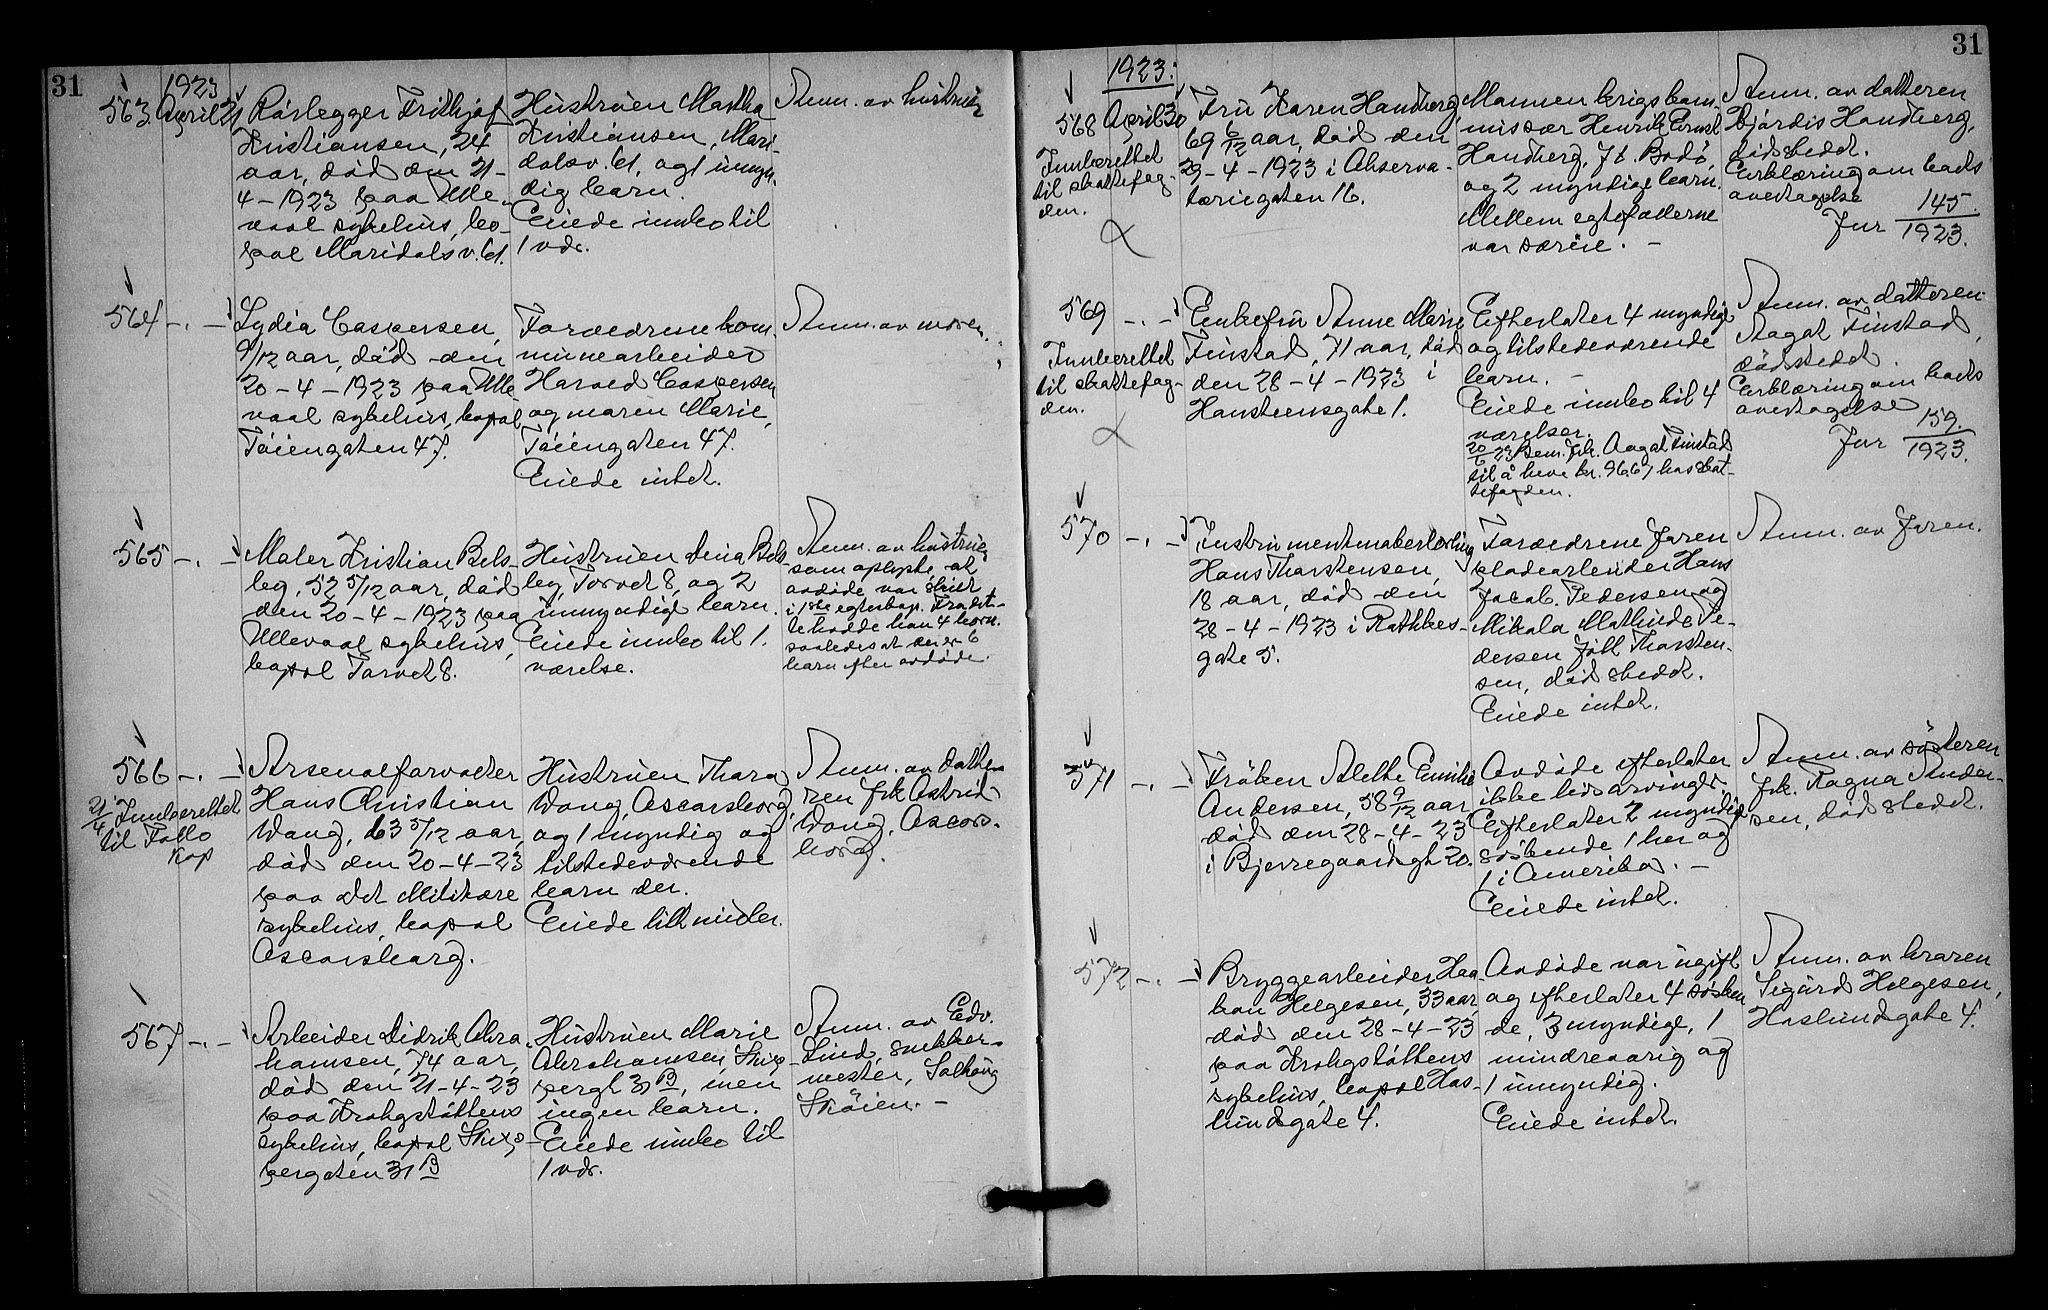 31
1923
563. April 21
Rørlegger Fridthjof
Kristiansen, 24
aar, død den 21-
4-1923 paa Ulle-
vaal sykehus, bo-
pæl Maridalsv. 61.
Hustruen Martha
Kristiansen, Mari-
dalsv. 61, og 1 umyn-
dig barn.
Eiede innbo til
1 vær.
Anm. av hustruen
564 -.-
Lydia Caspersen,
9/12 aar, død den
20-4-1923 paa Ulle-
vaal sykehus, bopæl
Tøiengaten 47.
Forældrene kom-
munearbeider
Harald Caspersen
og moren Marie,
Tøiengaten 47.
Eiede intet.
Anm. av moren.
565 -.-
Maler Kristian Bols-
leg, 52 5/12 aar, død
den 20-4-1923 paa
Ullevaal sykehus,
bopæl Torvet 8.
Hustruen Lina Bols-
leg, Torvet 8, og 2
umyndige barn.
Eiede innbo til 1.
værelse.
Anm. av hustruen
som oplyste at
avdøde var skilt
i 1ste egteskap. Fraskil-
te hadde han 4 barn.
saaledes at der er 6
barn efter avdøde.
566 -.-
21/4 Innberettet
til Follo
Arsenalforvalter
Hans Christian
Wang, 63 5/12 aar,
død den 20-4-23
paa det Militære
sykehus, bopæl
Oscarsborg.
Hustruen Thora
Wang, Oscarsborg,
og 1 myndig og
tilstedeværende
barn der.
Eiede litt midler.
Anm. av datte-
ren frk. Astrid
Wang, Oscars-
borg.
567 -.-
Arbeider Didrik Abra-
hamsen, 74 aar,
død den 21-4-23
paa Krohgstøttens
sykehus, bopæl Skip-
pergaten 31 B
Hustruen Marie
Abrahamsen, Skip-
pergt. 31 B, men
ingen barn.
Eiede innbo til
1 vær.
Anm. av Edv.
Lind, snekker-
mester, Solhaug
Skøien. -
31
1923:
568 April 30
Innberettet
til skattefog-
den.
Fru Karen Handberg,
69 6/12 aar, død den
29-4-1923 i Observa-
toriegaten 16.
Mannen krigskom-
missær Henrik Ernst
Handberg, f.t. Bodø,
og 2 myndige barn.
Mellem egtefællerne
var særeie. -
Anm. av datteren
Hjørdis Handberg,
dødstedet.
Erklæring om boets
overtagelse
Jnr 145/1923.
569 -.-
Innberettet
til skattefog-
den.
Enkefru Anne Marie
Finstad, 71 aar, død
den 28-4-1923 i
Hansteensgate 1.
Efterlater 4 myndige
og tilstedeværende
barn. -
Eiede innbo til 4
værelser.
20/6 23 Bem. frk. Aagot Finstad
til å heve kr. 96.67 hos skat-
tefogden.
Anm. av datteren
Aagot Finstad,
dødstedet.
Erklæring om boets
overtagelse
Jnr 159/1923.
570 -.-
Instrumentmakerlærling
Hans Thorstensen,
18 aar, død den
28-4-1923 i Rathkes-
gate 5.
Forældrene faren
pladearbeider Hans
Jacob Pedersen og
Mikala Mathilde Pe-
dersen født Thorsten-
sen, dødstedet.
Eiede intet.
Anm. av faren.
571 -.-
Frøken Alette Emilie
Andersen, 58 9/12 aar,
død den 28-4-23
i Bjerregaardsgt 20.
Avdøde efterlater
ikke livsarvinger.
Efterlater 2 myndige
søskende 1 her og
1 i Amerika. -
Eiede intet.
Anm. av søsteren
frk. Ragna Ander-
sen, dødstedet.
572 -.-
Bryggearbeider Haa-
kon Helgesen, 33 aar,
død den 28-4-23
paa Krohgstøttens
sykehus, bopæl Has-
lundsgate 4.
Avdøde var ugift
og efterlater 4 søsken-
de, 3 myndige, 1
mindreaarig og
1 umyndig.
Eiede intet.
Anm. av broren
Sigurd Helgesen,
Haslundsgate 4.